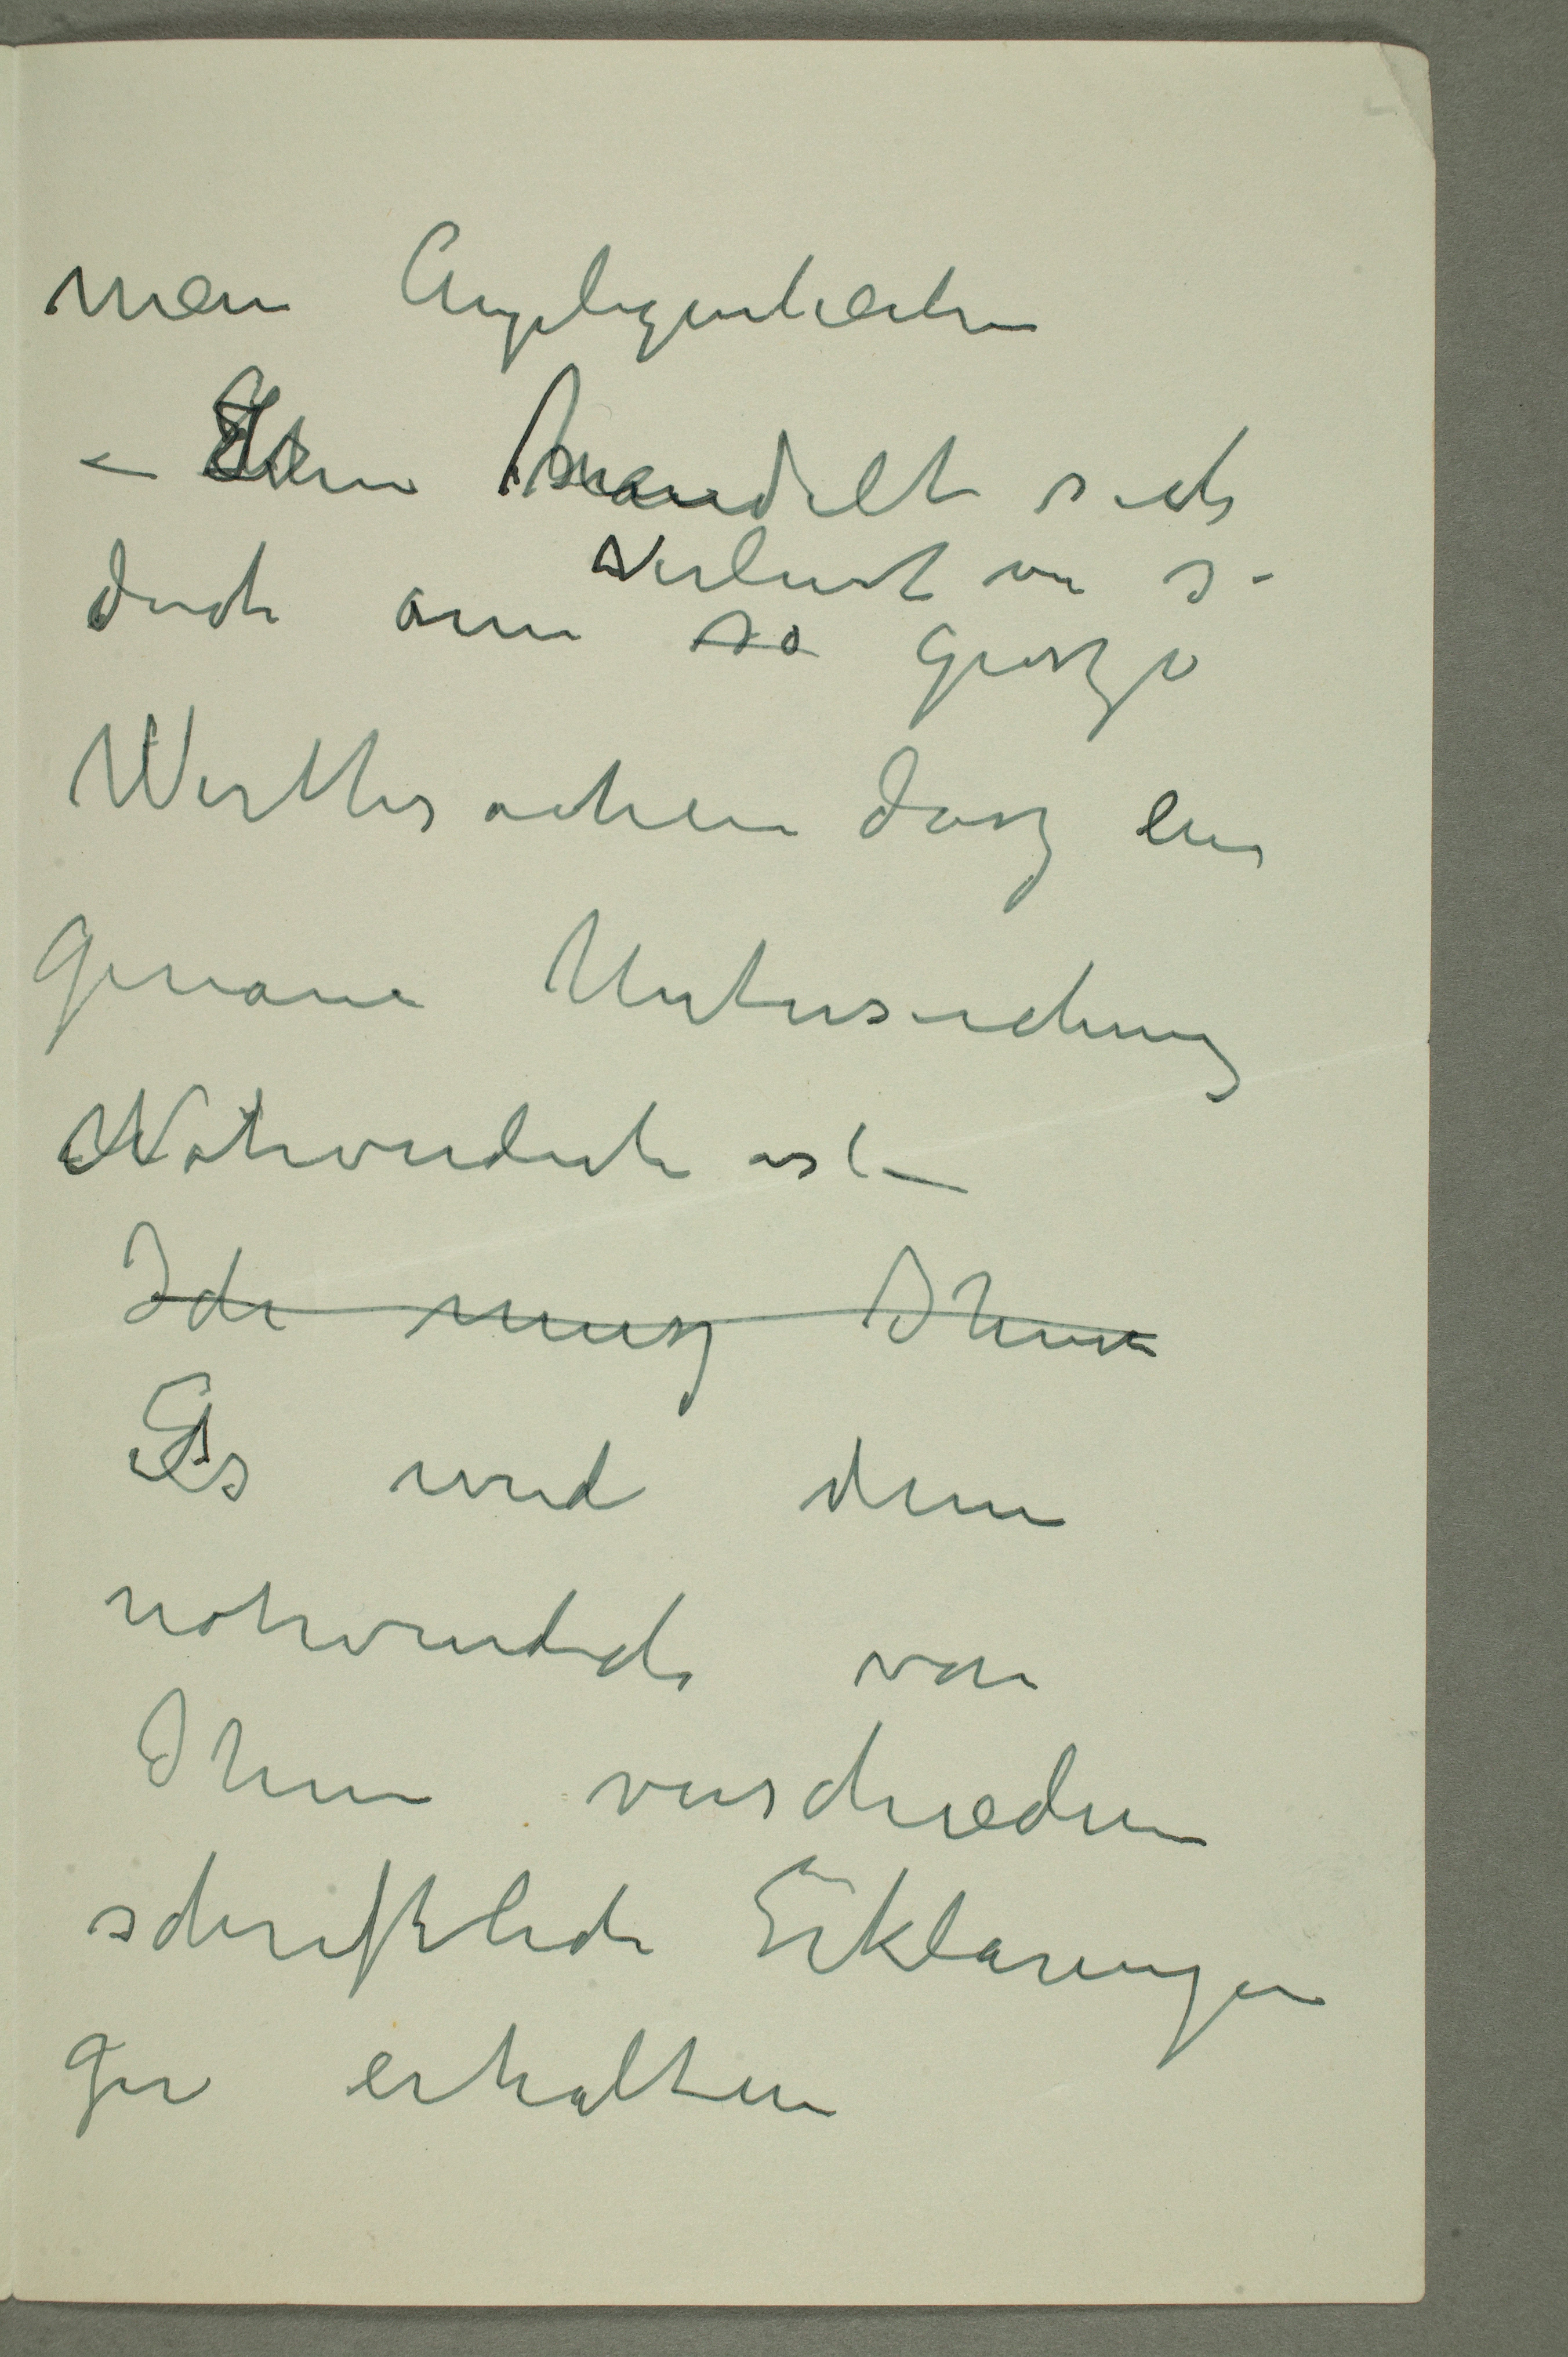 mein Angelegenheiten
– handelt sich
doch um Verlust von so
so grosze
Werthsachen dasz ein
genaue Untersuchung
Nothwendich ist –
Ich musz Ihnen
Es wird denn
nothwendich von
Ihnen verschiedene
schriftliche Erklärungen
zu erhalten